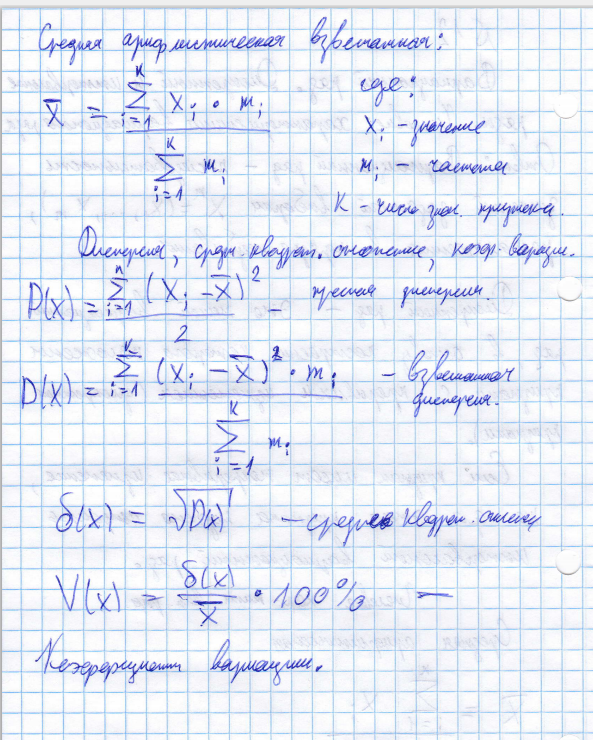 Средняя арифметическая взвешенная:
X̄ = ∑_{i=1}^{K} x_i · m_i / ∑_{i=1}^{K} m_i
где:
x_i – значение
m_i – частота
K – число знач. признака.
Дисперсия, средн. квадрат. отклонение, коэф. вариации.
D(x) = ∑_{i=1}^{n} (x_i – x̄)² / 2 – простая дисперсия.
D(x) = ∑_{i=1}^{K} (x_i – x̄)² · m_i / ∑_{i=1}^{K} m_i – взвешанная дисперсия.
δ(x) = √D(x) – среднее квадрат.
V(x) = δ(x) / x̄ · 100% –
Коэффициент вариации.